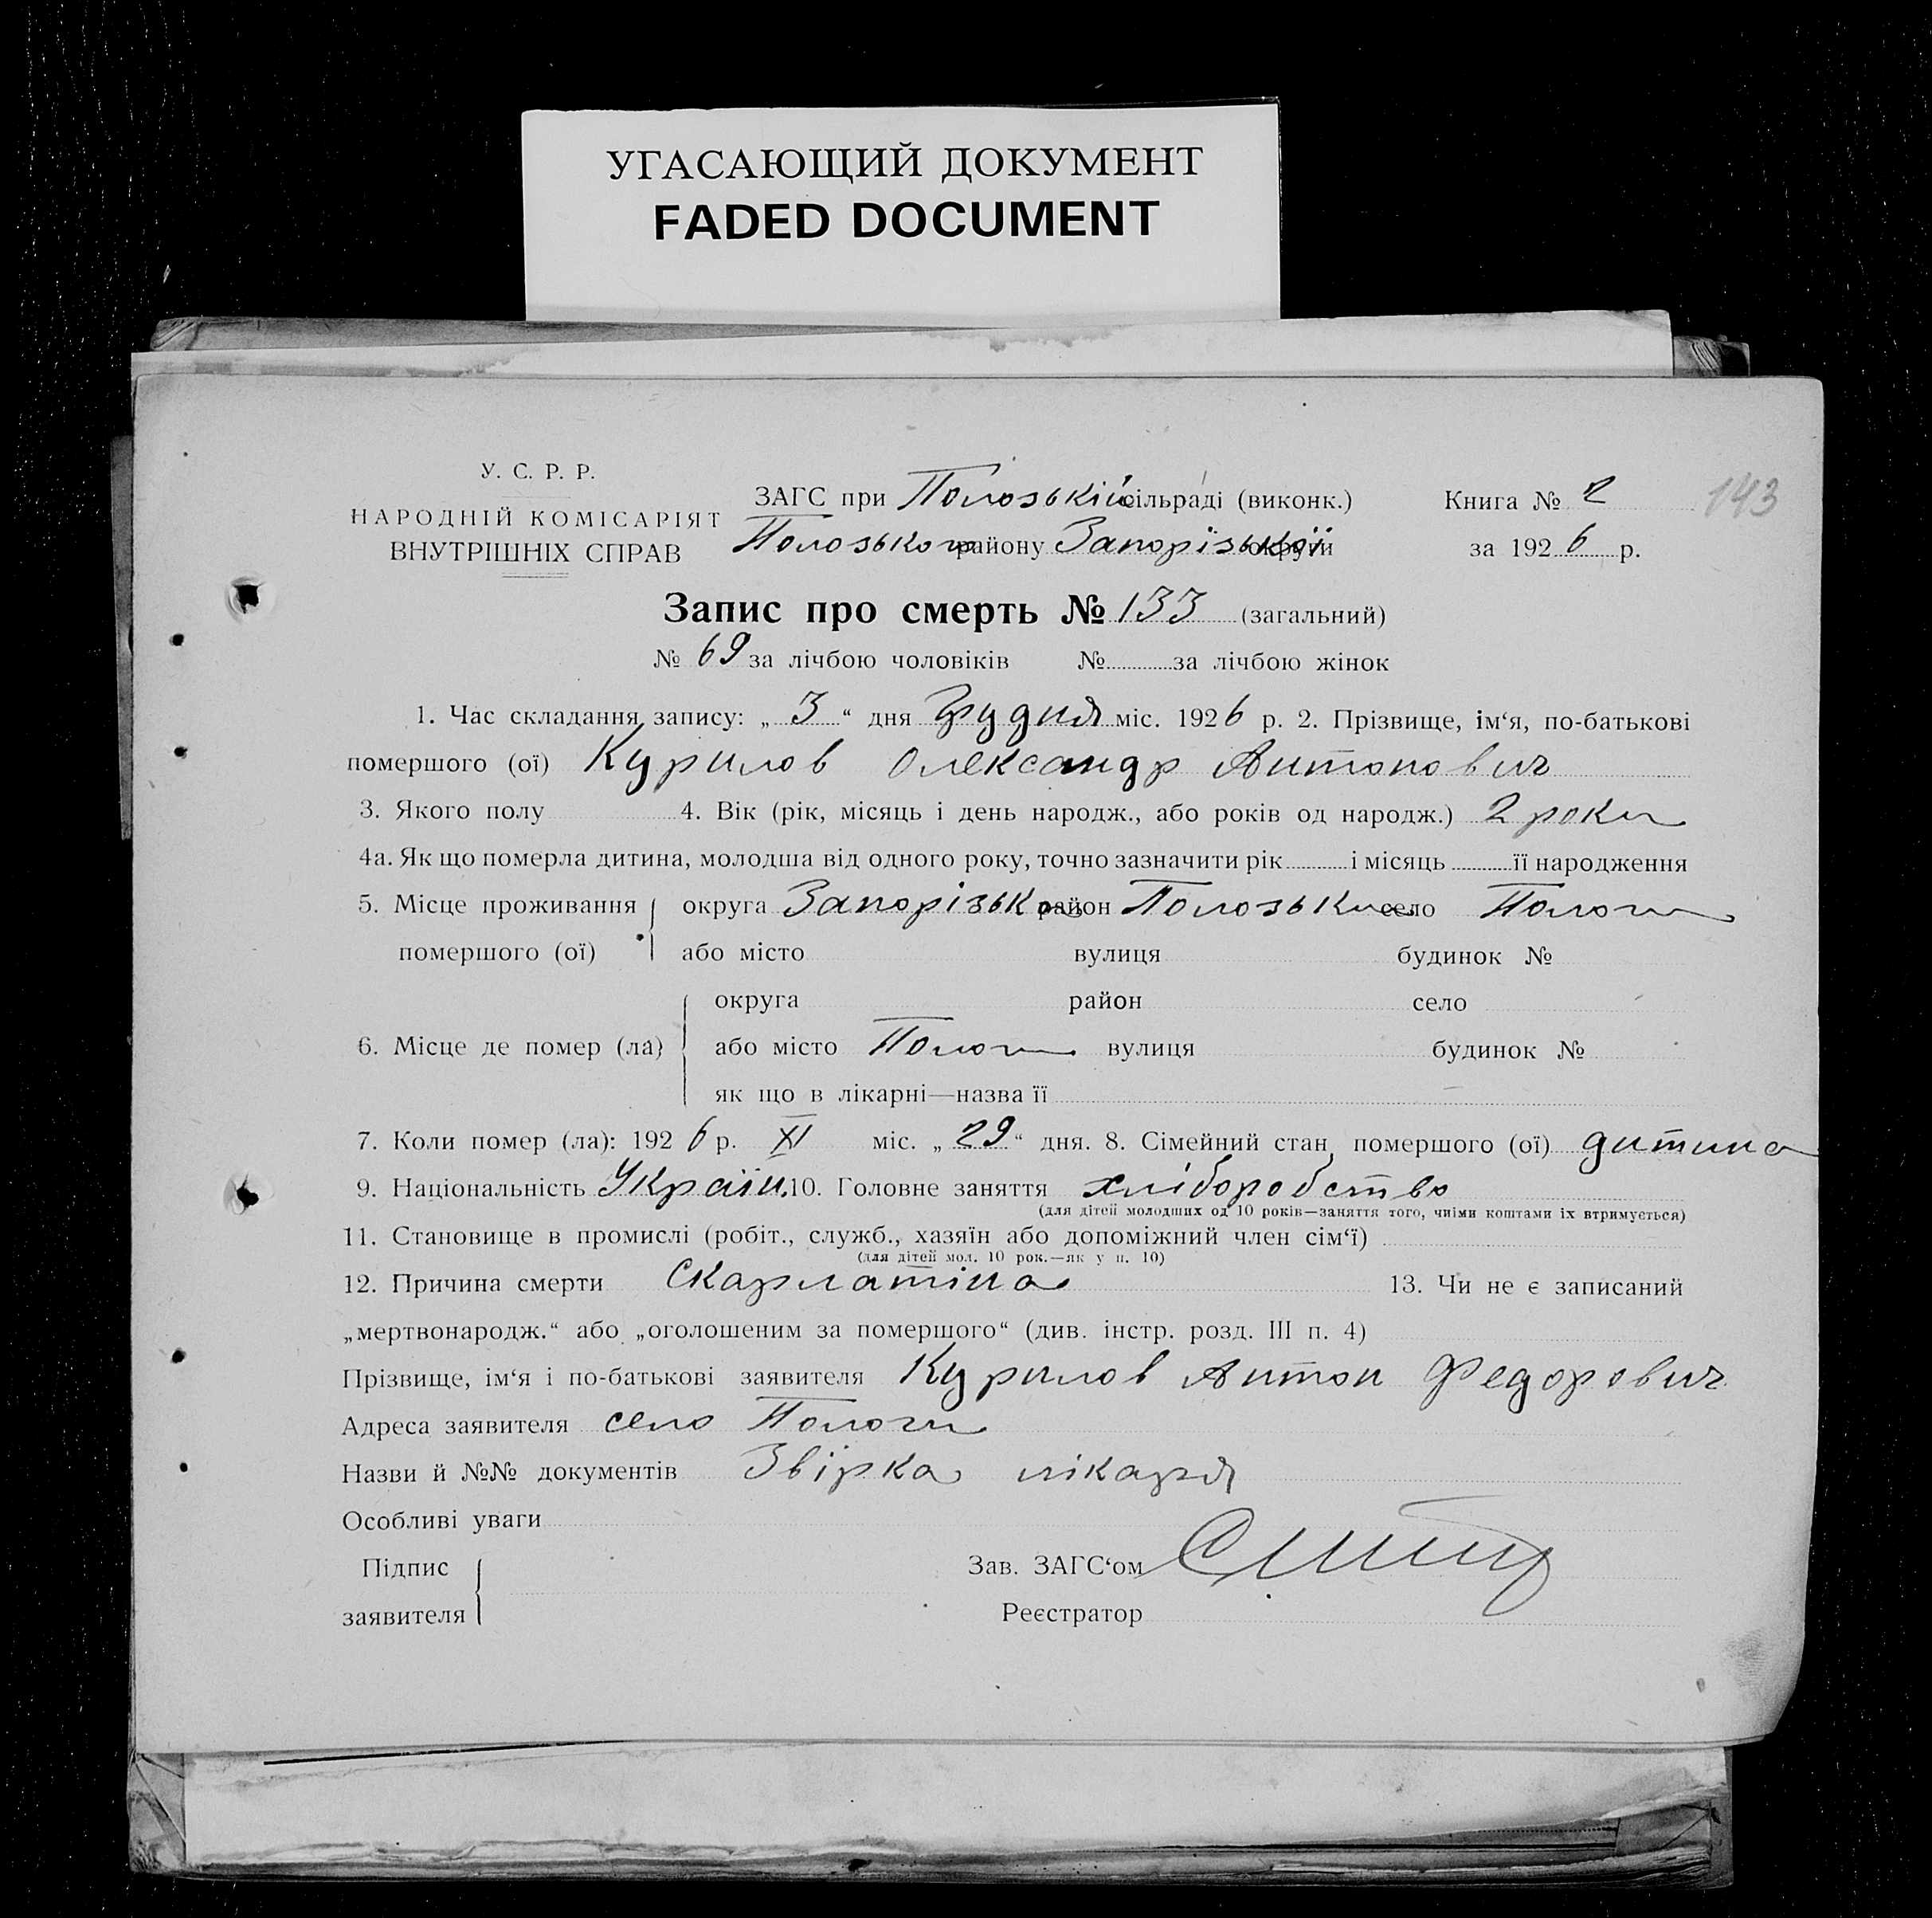 УГАСАЮЩИЙ ДОКУМЕНТ
FADED DOCUMENT
У. С. Р. Р.
НАРОДНІЙ КОМІСАРІЯТ
ВНУТРІШНІХ СПРАВ
ЗАГС при Полозькій сільраді (виконк.)
Полозького району Запорїзької округи
Книга № 2
143
за 1926 р.
Запис про смерть № 133 (загальний)
№ 69 за лічбою чоловіків № за лічбою жінок
1. Час складання запису: „ 3 “ дня Грудня міс. 1926 р. 2. Прізвище, ім‘я, по-батькові
помершого (ої) Курилов Олександр Антонович
3. Якого полу 4. Вік (рік, місяць і день народж., або років од народж.) 2 роки
4а. Як що померла дитина, молодша від одного року, точно зазначити рік і місяць її народження
5. Місце проживання округа Запорізька район Полозький село Пологи
помершого (ої) або місто вулиця будинок №
округа район село
6. Місце де помер (ла) або місто Пологи вулиця будинок №
як що в лікарні—назва її
7. Коли помер (ла): 1926 р. XI міс. „ 29 “ дня. 8. Сімейний стан помершого (ої) дитина
9. Національність Україн. 10. Головне заняття хліборобство
(для дітей молодших од 10 років—заняття того, чиїми коштами їх втримується)
11. Становище в промислі (робіт., служб., хазяїн або допоміжний член сім‘ї)
(для дітей мол. 10 рок.—як у п. 10)
12. Причина смерти Скарлатіна 13. Чи не є записаний
„мертвонародж.“ або „оголошеним за помершого“ (див. інстр. розд. III п. 4)
Прізвище, ім‘я і по-батькові заявителя Курилов Антон Федорович
Адреса заявителя село Пологи
Назви й №№ документів Звірка лікаря
Особливі уваги
Підпис
заявителя
Зав. ЗАГС‘ом
Реєстратор